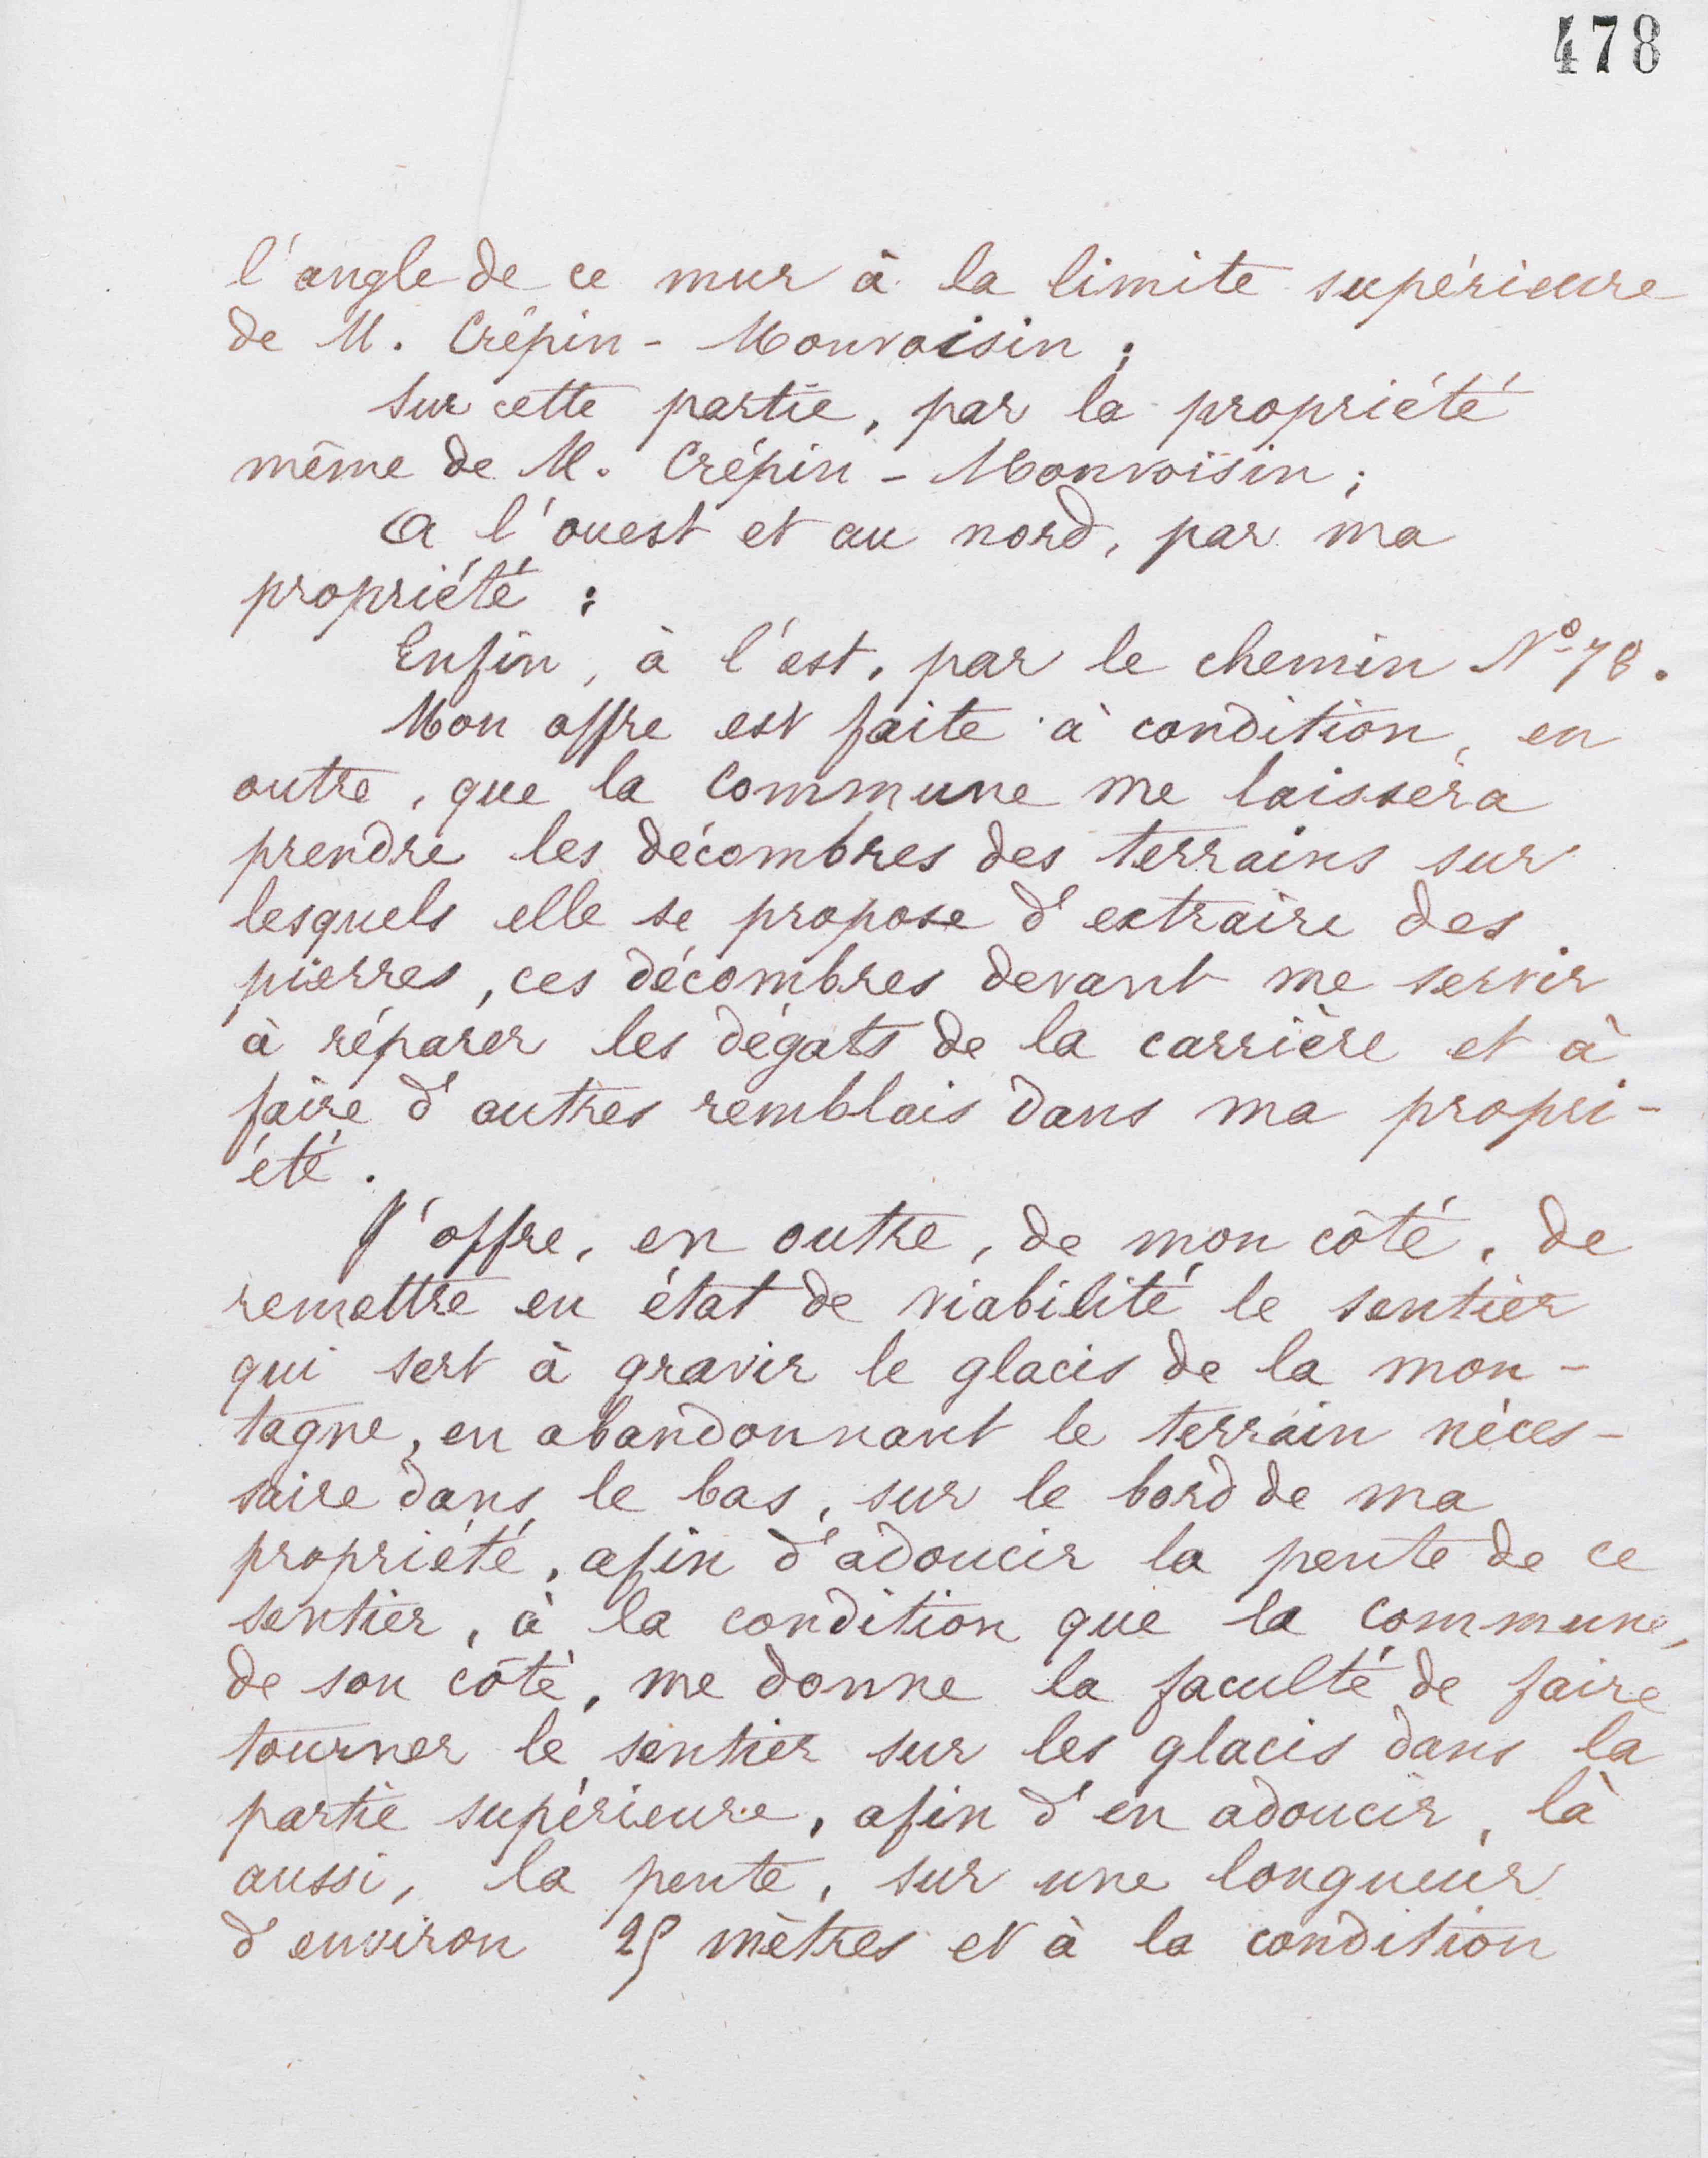 478
l'angle de ce mur à la limite supérieure
de M. Crépin - Monvoisin ;
Sur cette partie, par la propriété
même de M. Crépin - Monvoisin ;
A l'ouest et au nord, par ma
propriété ;
Enfin, à l'est, par le chemin No 78.
Mon offre est faite à condition, en
outre, que la Commune me laissera
prendre les décombres des terrains sur
lesquels elle se propose d'extraire des
pierres, ces décombres devant me servir
à réparer les dégats de la carrière et à
faire d'autres remblais dans ma propri-
été.
J'offre, en outre, de mon côté, de
remettre en état de viabilité le sentier
qui sert à gravir le glacis de la mon-
tagne, en abandonnant le terrain néces-
saire dans le bas, sur le bord de ma
propriété, afin d'adoucir la pente de ce
sentier, à la condition que la commune,
de son côté, me donne la faculté de faire
tourner le sentier sur les glacis dans la
partie supérieure, afin d'en adoucir, là
aussi, la pente, sur une longueur
d'environ 25 mètres et à la condition